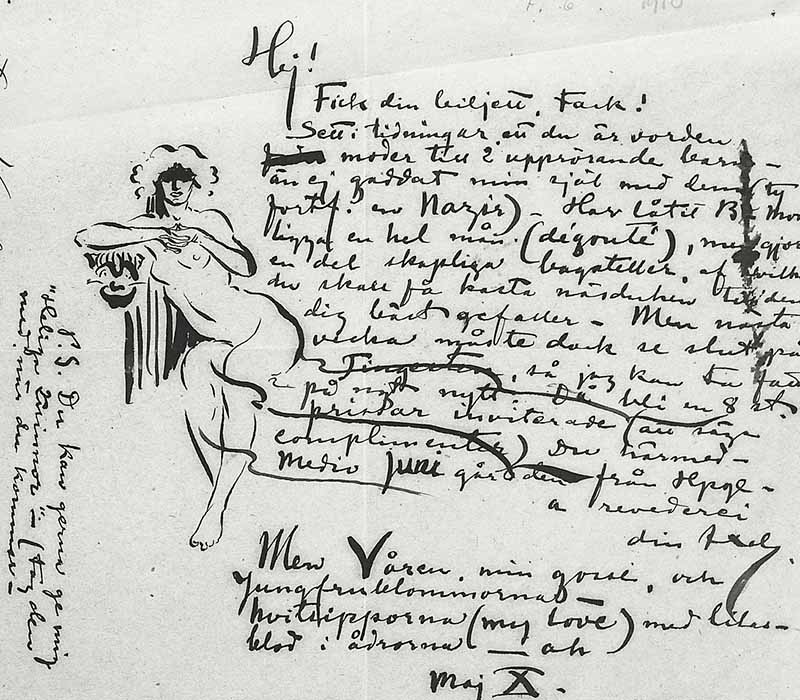 Hej!
Fick din biljett. Tack!
Sett i tidningar att du är vorden
moder till 2 upprörande barn —
än ej gaddat min själ med dem (ty
fortf. en Nazir) — Har låtit
ligga en hel mån. (dégouté), men gjort
en del skapliga bagateller, af
du skall få kasta näsduken till den
dig bäst gefaller — Men nästa
vecka måste dock se slut på
Fingerten, så jag kan ta
på nytt nytt. Då bli en 8 st.
prissar inviterade (att säga
complimenter) Du härmed —
Medio juni går den från Hpge —
a revederci
din Axel.
Men Våren, min gosse, och
Jungfrublommorna —
hvitsipporna (my love) med lilas —
blod i ådrorna — ah
Maj X.
P.S. Du kan gerna ge mig
"Heliga Qvinnor" — (tag den
med när du kommer —